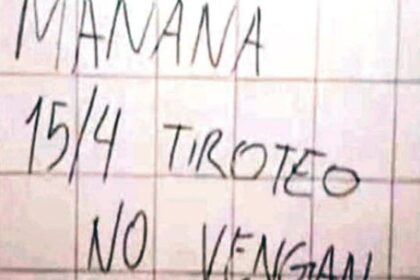 MAÑANA
15/4 TIROTEO
NO VENGAN